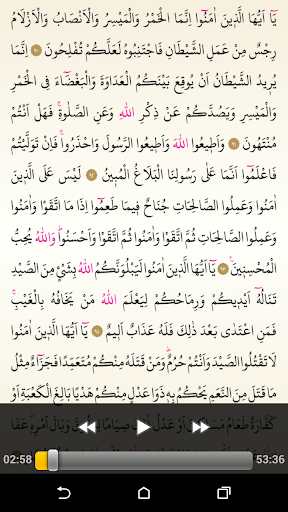 يَٓا اَيُّهَا الَّذ۪ينَ اٰمَنُٓوا اِنَّمَا الْخَمْرُ وَالْمَيْسِرُ وَالْاَنْصَابُ وَالْاَزْلَامُ
رِجْسٌ مِنْ عَمَلِ الشَّيْطَانِ فَاجْتَنِبُوهُ لَعَلَّكُمْ تُفْلِحُونَ ﴿٩٠﴾ اِنَّمَا
يُر۪يدُ الشَّيْطَانُ اَنْ يُوقِعَ بَيْنَكُمُ الْعَدَاوَةَ وَالْبَغْضَٓاءَ فِي الْخَمْرِ
وَالْمَيْسِرِ وَيَصُدَّكُمْ عَنْ ذِكْرِ اللّٰهِ وَعَنِ الصَّلٰوةِۚ فَهَلْ اَنْتُمْ
مُنْتَهُونَ ﴿٩١﴾ وَاَط۪يعُوا اللّٰهَ وَاَط۪يعُوا الرَّسُولَ وَاحْذَرُواۚ فَاِنْ تَوَلَّيْتُمْ
فَاعْلَمُٓوا اَنَّمَا عَلٰى رَسُولِنَا الْبَلَاغُ الْمُب۪ينُ ﴿٩٢﴾ لَيْسَ عَلَى الَّذ۪ينَ
اٰمَنُوا وَعَمِلُوا الصَّالِحَاتِ جُنَاحٌ ف۪يمَا طَعِمُٓوا اِذَا مَا اتَّقَوْا وَاٰمَنُوا
وَعَمِلُوا الصَّالِحَاتِ ثُمَّ اتَّقَوْا وَاٰمَنُوا ثُمَّ اتَّقَوْا وَاَحْسَنُواۜ وَاللّٰهُ يُحِبُّ
الْمُحْسِن۪ينَ۟ ﴿٩٣﴾ يَٓا اَيُّهَا الَّذ۪ينَ اٰمَنُوا لَيَبْلُوَنَّكُمُ اللّٰهُ بِشَيْءٍ مِنَ الصَّيْدِ
تَنَالُهُٓ اَيْد۪يكُمْ وَرِمَاحُكُمْ لِيَعْلَمَ اللّٰهُ مَنْ يَخَافُهُ بِالْغَيْبِۚ
فَمَنِ اعْتَدٰى بَعْدَ ذٰلِكَ فَلَهُ عَذَابٌ اَل۪يمٌ ﴿٩٤﴾ يَٓا اَيُّهَا الَّذ۪ينَ اٰمَنُوا
لَا تَقْتُلُوا الصَّيْدَ وَاَنْتُمْ حُرُمٌۜ وَمَنْ قَتَلَهُ مِنْكُمْ مُتَعَمِّدًا فَجَزَٓاءٌ مِثْلُ
مَا قَتَلَ مِنَ النَّعَمِ يَحْكُمُ بِه۪ ذَوَا عَدْلٍ مِنْكُمْ هَدْيًا بَالِغَ الْكَعْبَةِ اَوْ
كَفَّارَةٌ طَعَامُ مَسَاك۪ينَ اَوْ عَدْلُ ذٰلِكَ صِيَامًا لِيَذُوقَ وَبَالَ اَمْرِه۪ۜ عَفَا
02:58 53:36